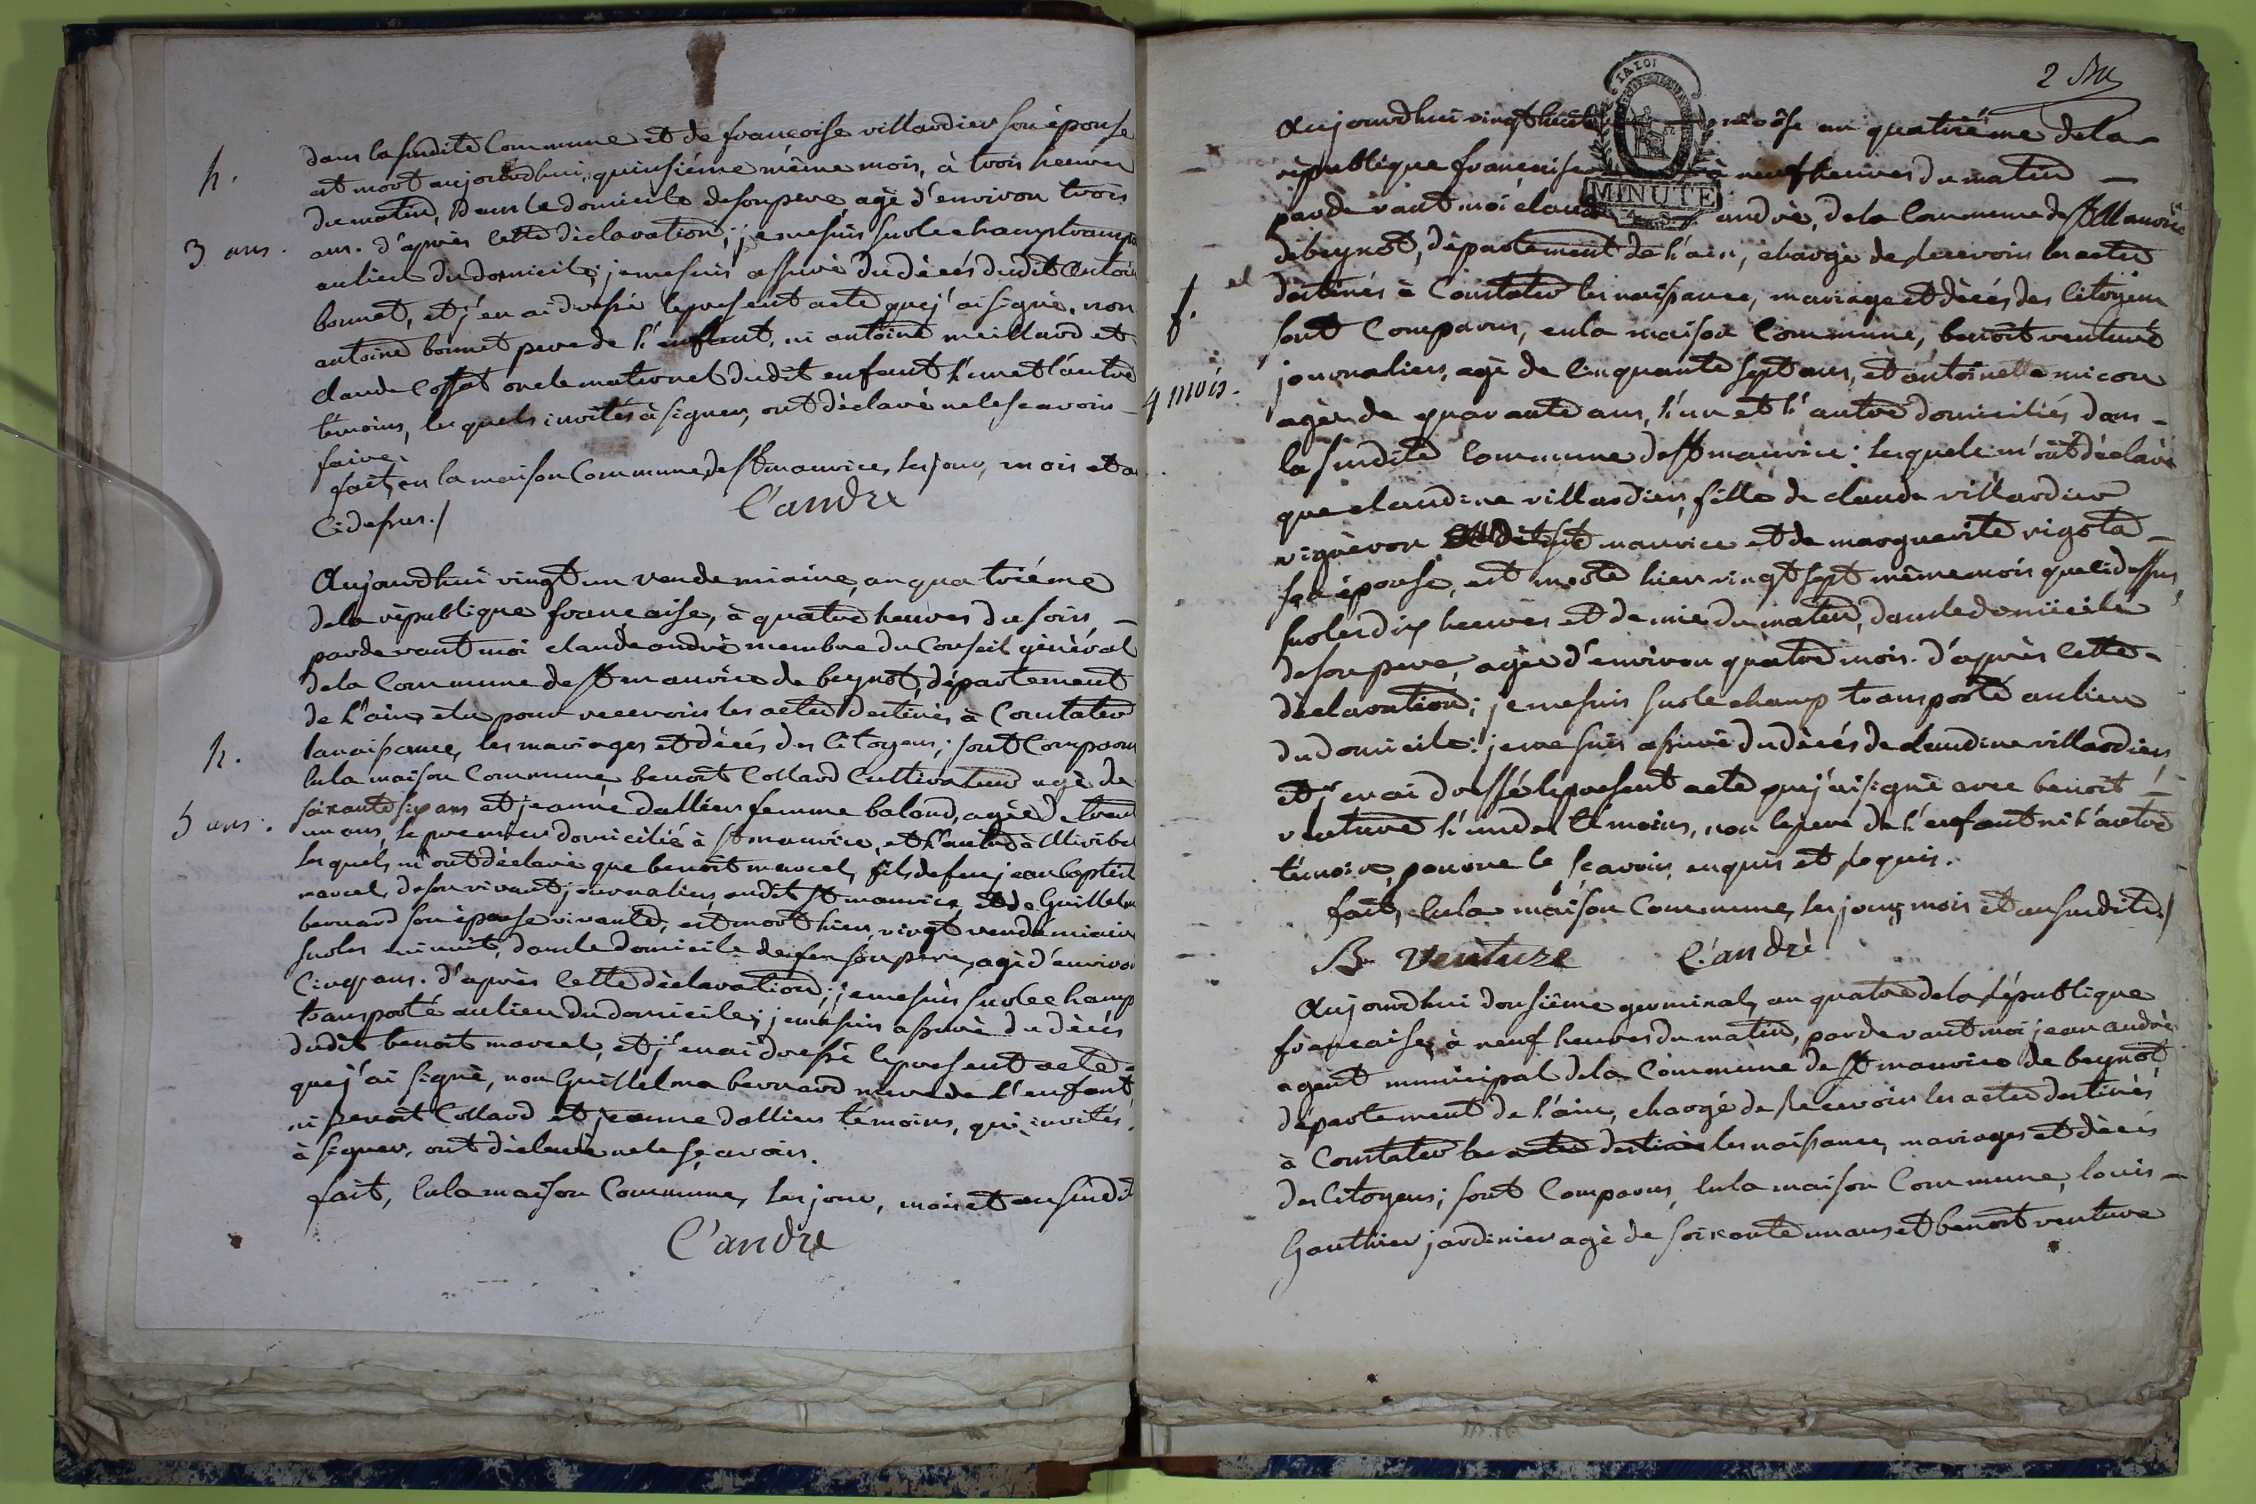 dans la susdite Commune et de françoise villardier son épouse
h.
est mort aujourdhui, quinsiéme même mois, à trois heures
du matin, dans le domicile de son pere agé d'environ trois
3 ans.
ans. d'après cette déclaration; je me suis sur le champ transp
au lieu du domicile; je me suis assuré du décés dudit Antoi
bonnet, et j'en ai dressé le present acte que j'ai signé, non
antoine bonnet pere de l'enfant, ni antoine meillard et
claude Cossat oncle maternel dudit enfant l'un et l'autre
témoins, lesquels invités à signer, ont déclaré ne le scavoir
faire.
fait, en la maison Commune, de St maurice, les jour, mois et a
Cidessus./
C'andre
Aujourdhui vingt un vendemiaire, an quatriéme
de la république francaise, à quatre heures du soir
pardevant moi claude andré membre du Conseil général
de la Commune de St maurice de beynot, département
de l'ain, elu pour recevoir les actes destinés à Constater
h.
la naissance, les mariages et décés des Citoyens; sont Comparus
en la maison Commune benoit Collard Cultivateur agé de
soixante six ans et jeanne dallier femme balond, agée de trent
5 ans.
un ans, le premier domicilié à St maurice, et l'autre à Miribel
lesquels m'ont déclaré que benoit marcel, fils de feu jean baptist
marcel, de son vivant journalier audit St maurice et de Guillelm
bernard son épouse vivante, est mort hier, vingt vendémiaire
sur les minuit, dans le domicile de feu son pere, agé d'environ
Cinq ans. d'après cette déclaration; je me suis sur le champ
transporté au lieu du domicile; je me suis assuré du décés
dudit benoit marcel, et j'en ai dressé le present acte
que j'ai signé, non Guillelma bernard mere de l'enfant,
ni benoit Collard et jeanne dallier témoins, qui, invités
à signer, ont déclaré ne le sçavoir.
fait, en la maison Commune, les jour, mois et an susdit
C'andre
2
IATOI
MINUTE
Aujourdhui vingt huit nivôse an quatriéme de la
république francaise à neuf heures du matin
pardevant moi claude andré, de la Commune de St Maurice
de beynot, département de l'ain, chargé de recevoir les actes
f.
destinés à Constater les naissance, mariage et décés des Citoyens
sont Comparus, en la maison Commune, benoit venture
4 mois.
journalier, agé de Cinquante sept ans, et antoinette micou
agée de quarante ans, l'un et l'autre domiciliés dans
la susdite Commune de St maurice: lesquels m'ont déclaré
que claudine villardier, fille de claude villardier
vigneron audit St maurice et de marguerite rigolta
son épouse, est morte hier vingt sept même mois que cidessus,
sur les dix heures et demie du matin, dans le domicile
de son pere, agée d'environ quatre mois. d'après cette
déclaration; je me suis sur le champ transporté au lieu
du domicile: je me suis assuré du décés de claudine villardier
et j'en ai dressé le present acte que j'ai signé avec benoit
venture l'un des témoins, non le pere de l'enfant ni l'autre
témoin, pour ne le sçavoir, enquis et requis.
fait, en la maison Commune, les jour, mois et an susdits./
B Venture C'andré
Aujourdhui dousiême germinal, an quatre de la république
francaise, à neuf heures du matin, pardevant moi jean andré
agent municipal de la Commune de St maurice de beynot
département de l'ain, chargé de recevoir les actes destinés
à Constater les actes destinés les naissance, mariages et décés
des Citoyens; sont Comparus, en la maison Commune, louis
Gauthier jardinier agé de soixante un ans et benoit venture